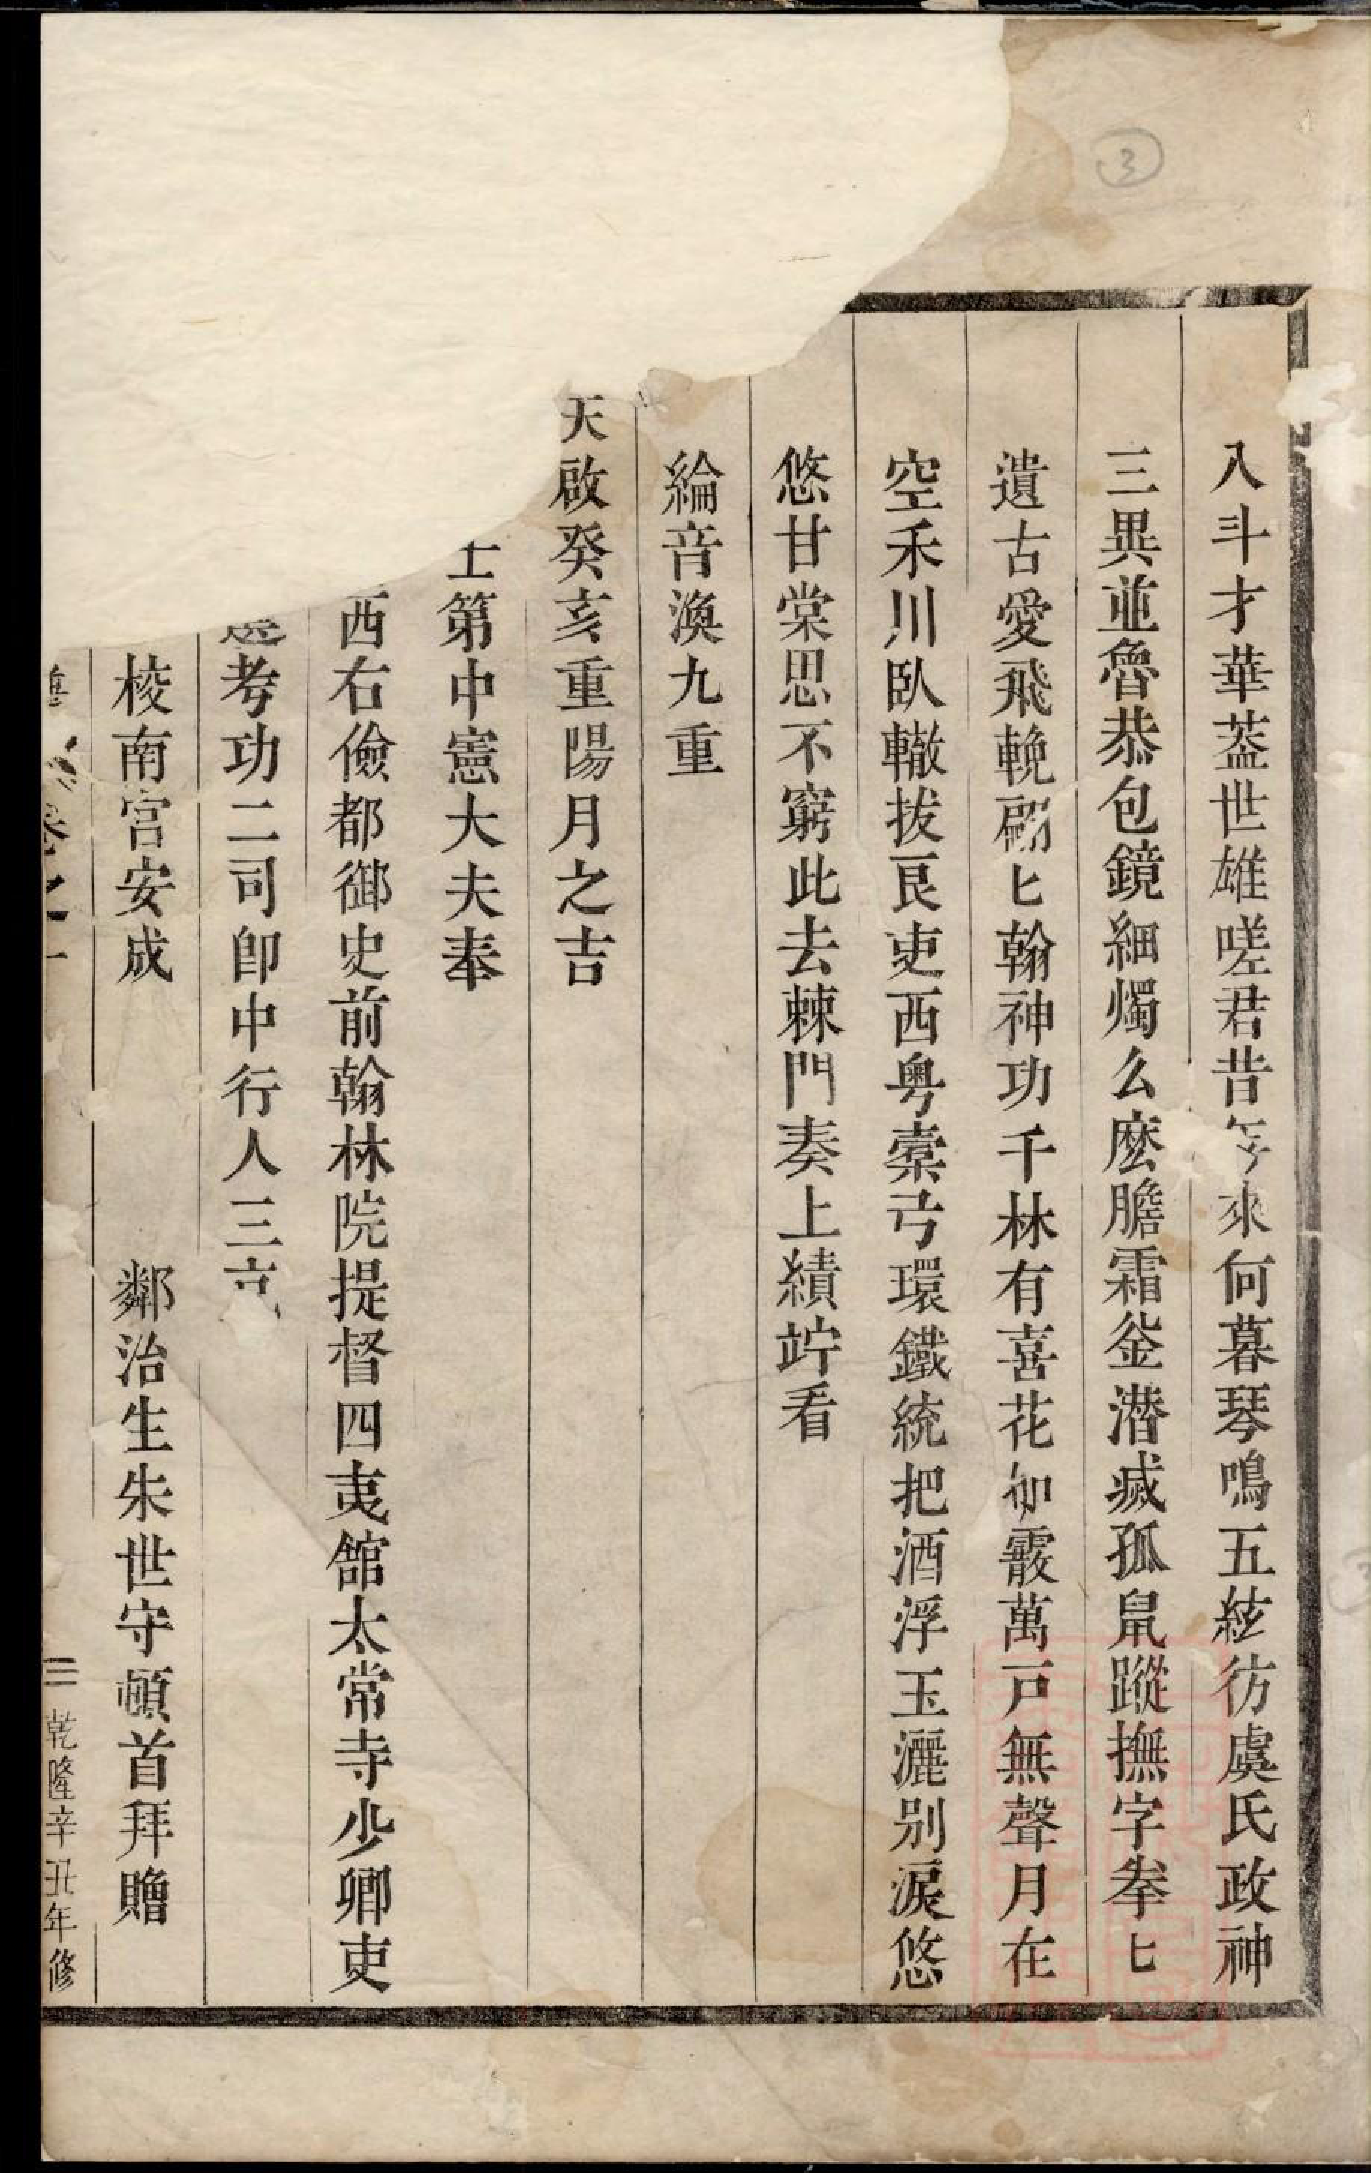 八斗才華葢世雄嗟君昔年來何暮琴鳴五絃彷虞氏政神
三異並魯恭包鏡細燭么麽膽霜釜潜㓕孤鼠蹤撫字拳匕
遺古愛飛輓翩匕翰神功千林有喜花如霰萬戸無聲月在
空禾川臥轍拔良吏西粤櫜弓環鐵統把酒浮玉灑别淚悠
悠甘棠思不窮此去棘門奏上績竚看
綸音渙九重
天啟癸亥重陽月之吉
士第中憲大夫奉
西右儉都御史前翰林院提督四夷舘太常寺少卿吏
選考功二司郎中行人三
稜南宫安成 鄰治生朱世守頓首拜贈
卷之一 三 乾隆辛丑年修
3